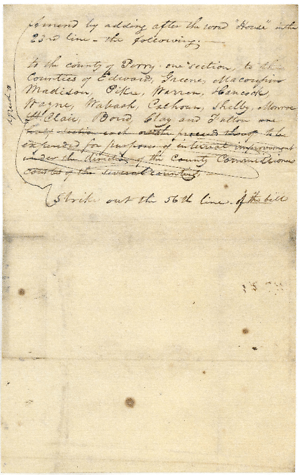 Amend by adding after the word "House" in the
23rd line - the following;
to the county of Perry, one section, to the
Counties of Edward, Greene, Macoupin
Madison, Pike, Warren, Hancock,
Wayne, Wabash, Calhoun, Shelby, Monroe
St Clair, Bond, Clay and Fulton one
half section each
expended for purposes of internal improvement
under the direction of the County Commissioners
courts of the several counties
Strike out the 56th line of the bill